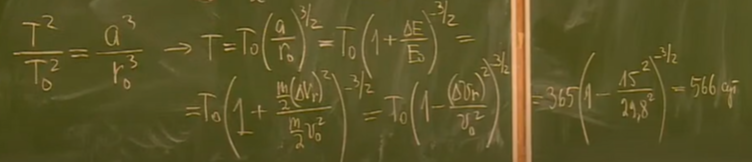 T²/T₀² = a³/r₀³ → T = T₀(a/r₀)^3/2 = T₀(1 + ΔE/E₀)^-3/2 =
= T₀(1 + m/2(Δv_r)²/m/2 v₀²)^-3/2 = T₀(1 - (Δv_r)²/v₀²)^-3/2 = 365(1 - 15²/29,8²)^-3/2 = 566